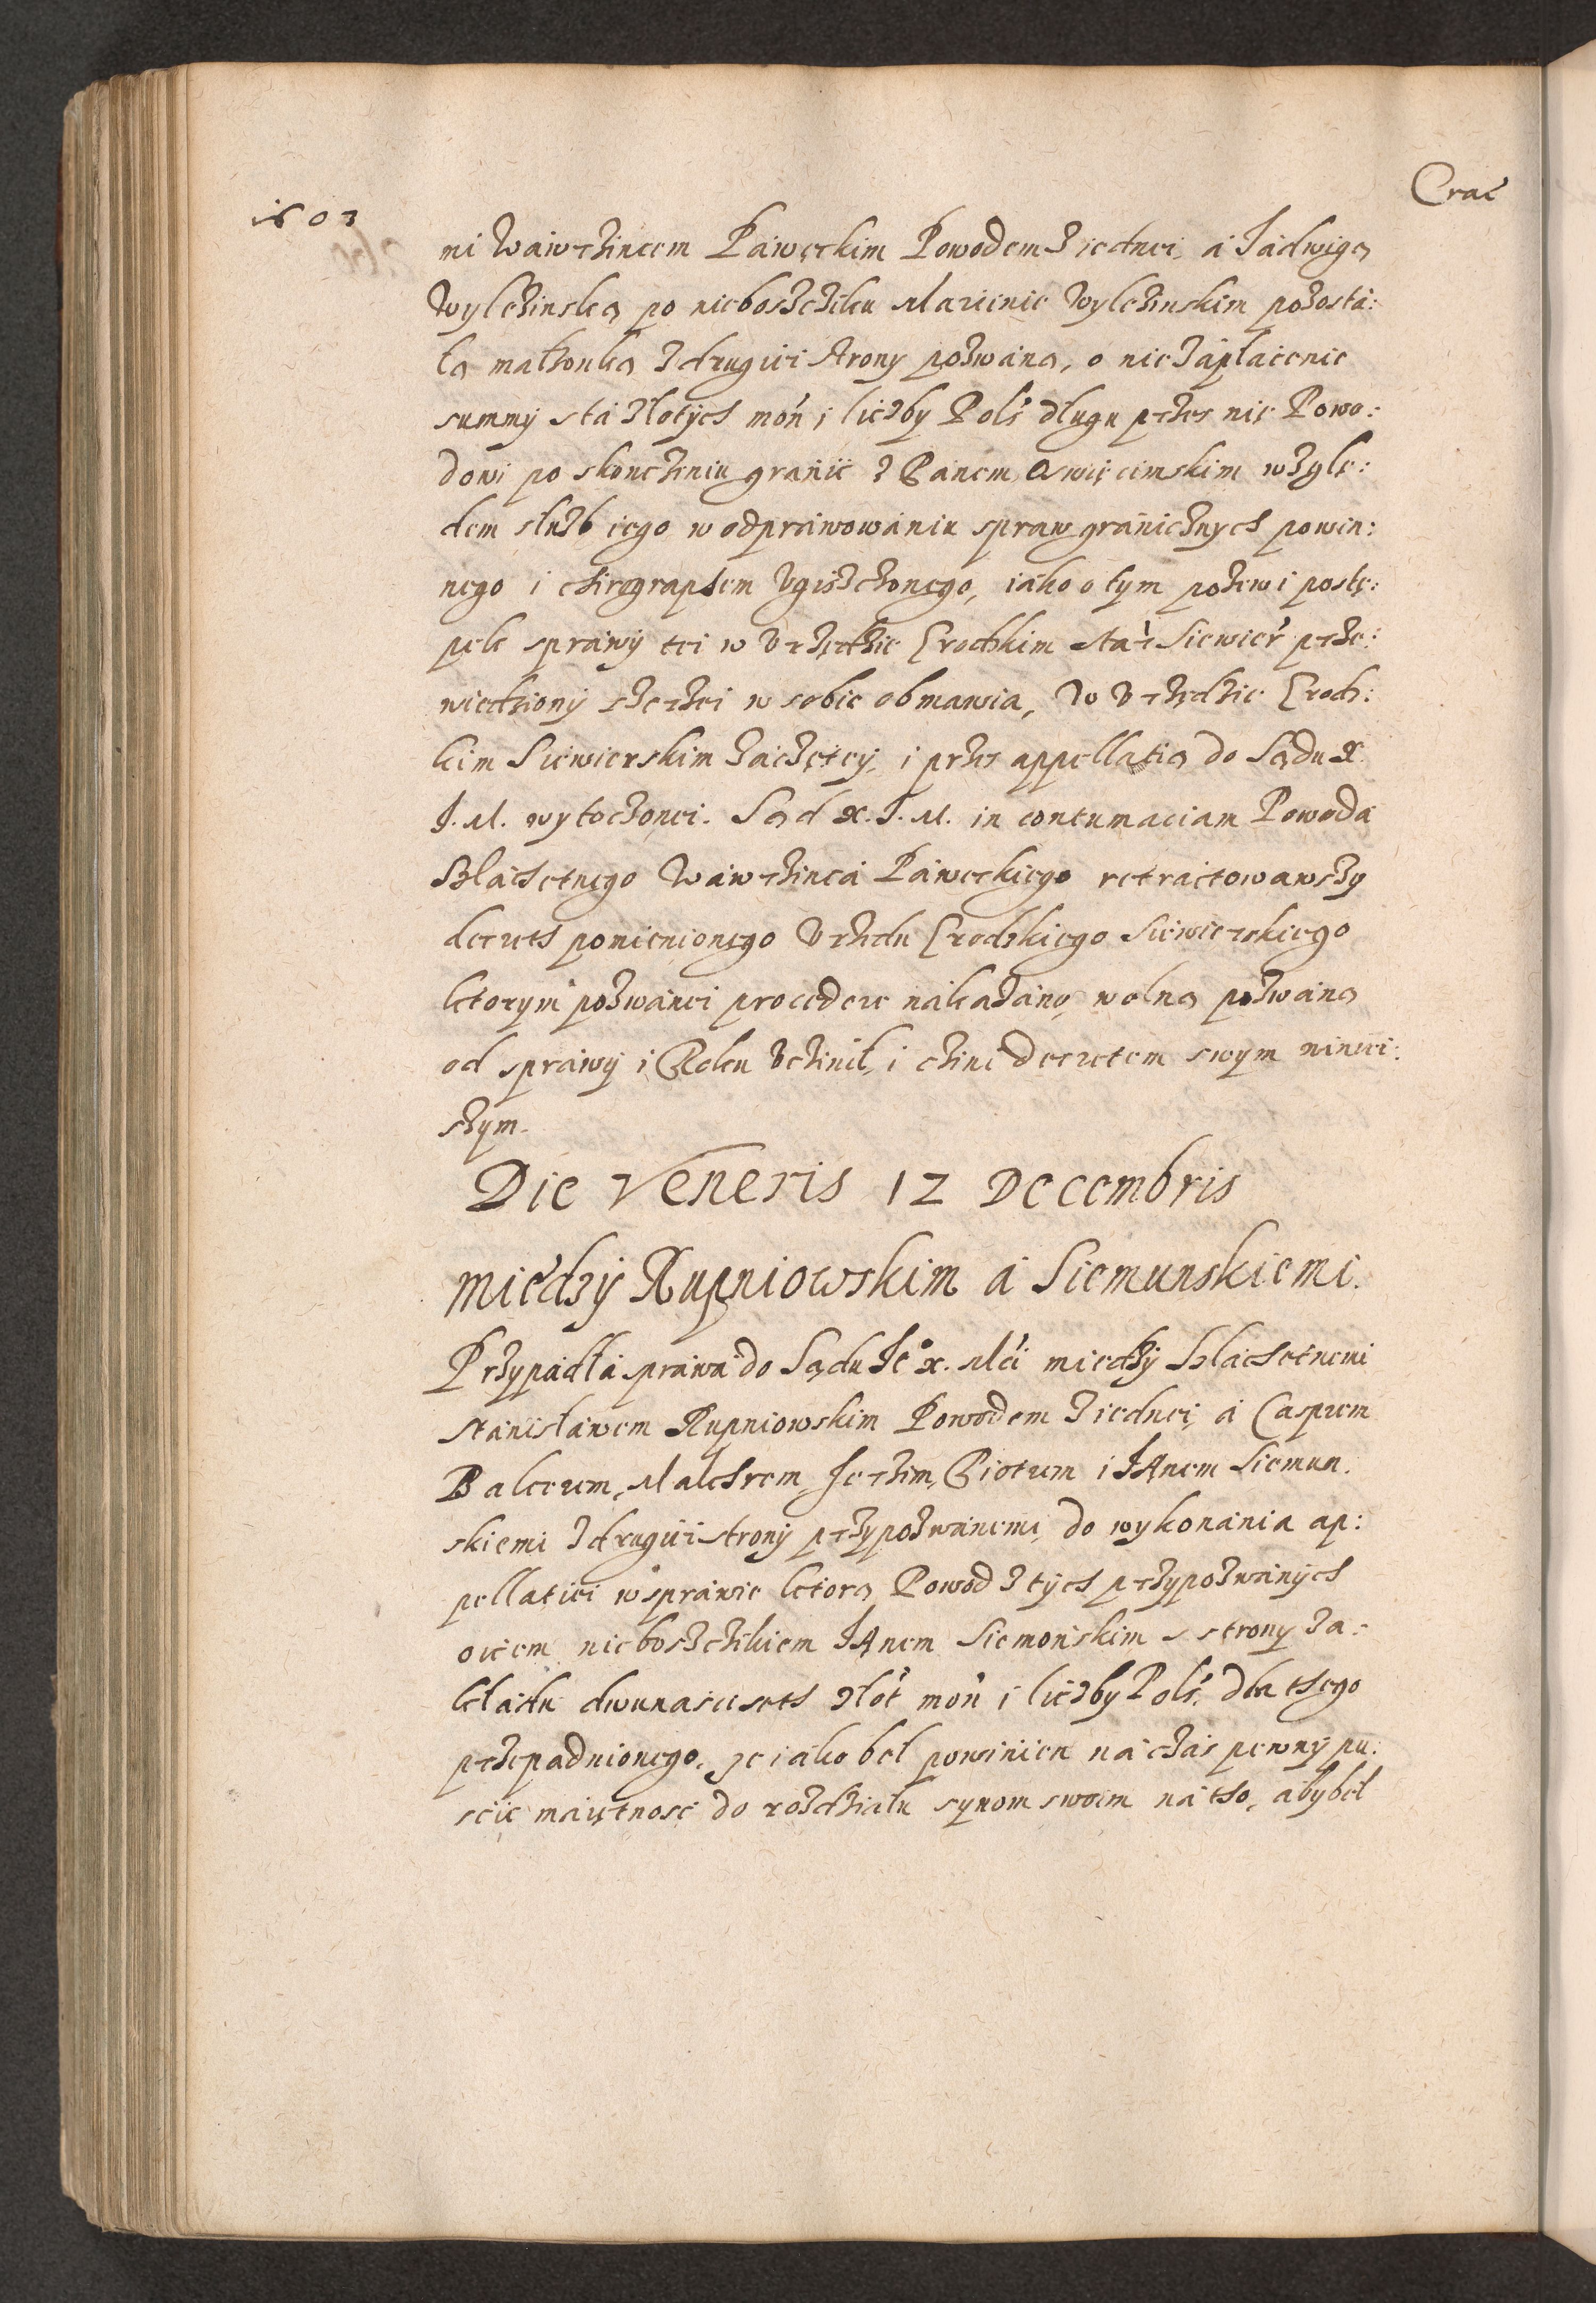 Crać
1603
ni Wáwrzińcem Páwęzkim Powodem z iednei, á Jádwigą
Wylczinską po nieboszczziku Marcinie Wylczinskim pozostá:
łą małżonką z drugiei strony pozwáną, o nie zápłácenie
summy stá złotych moń i liczby Polś długu przez nię Powo:
dowi po skonczeniu gránic z Panem Oswięcimskim wzglę:
dem służb iego w odpráwowániu spraw gránicznych powin:
nego i chirographem vgiszczonego, iáko o tym pozew i postę:
pek spráwy tei w Vrzędzie Grodzkim Stár Siewier prze:
wiedziony szerzei w sobie obmawia, w Vrzędzie Grodz:
kim Siewierskim záczętey, i przez appellatią do Sądu X.
J. M. wytoczonei. Sąd X. J. M. in contumaciam Powodá
Szláchetnego Wáwrzińcá Páwęzkiego retráctowawszy
decreth pomienionego Vrzędu Grodzkiego Siewierskiego
ktorym pozwánei procedere nákazáno, wolną pozwáną
od spráwy i Roku vczinił, i czini decretem swym ninieі:
szym.
Die Veneris 12 Decembris
Między Rupniowskim á Siemunskiemi.
Przypádłá spráwá do Sądu Jeo X. Mći między Szláchetnemi
Stánisłáwem Rupniowskim Powodem z iednei, á Casprem
Balcerem, Malchrem, Jerzim, Piotrem i JAnem Siemun:
skiemi z drugiei strony przypozwánemi, do wykonánia ap:
pellatiei w spráwie ktorą Powod z tych przypozwánych
oicem nieboszczikiem JAnem Siemońskim s strony za:
kłádu dwunasciseth złot moń i liczby Polś, dla thego
przepadnionego, ze iáko beł powinien ná czás pewny pu:
scić máiętnosc do rozdziału synom swoim ná tho, áby beł